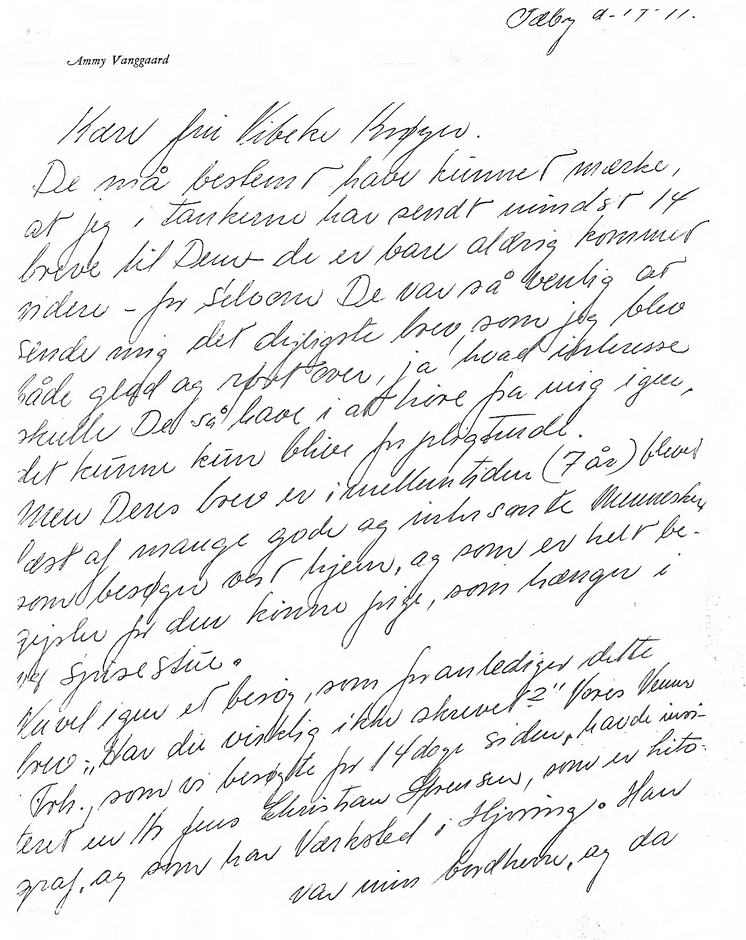 d. 17-11.
Ammy Vanggaard
Kære frú Vibeke Krøyer.
De må bestemt have kunnet mærke,
at jeg i tankerne har sendt mindst 14
breve til Dem - de er bare aldrig kommet
videre - for selvom De var så venlig at
sende mig det dejligste brev, som jeg blev
både glad og rørt over, ja hvad interesse
skulle De så have i at høre fra mig igen,
det kunne kun blive forpligtende.
Men Deres brev er i mellemtiden (7 år) blevet
læst af mange gode og interessante Mennesker,
som besøger vort hjem, og som er helt be-
for den kønne pige, som hænger i
spisestue.
Nuvel igen et besøg, som foranlediger dette
brev: "Har du virkelig ikke skrevet?" Vores Venner
Frh., som vi besøgte for 14 dage siden, havde invi-
teret en Hr Jens Christian Sørensen, som er lito-
graf, og som har Værksted i Hjørring. Han
var min bordherre, og da